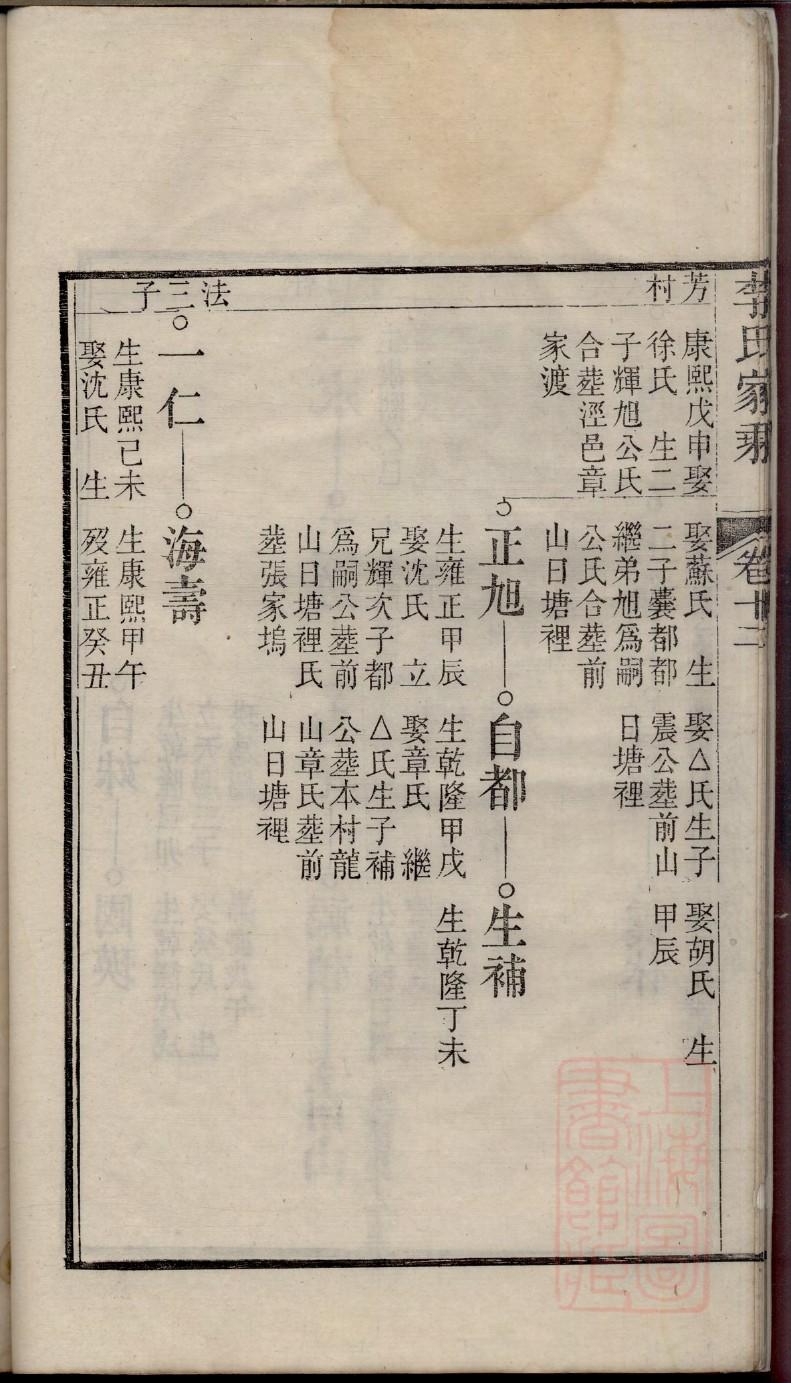 李氏家乘
卷十二
芳村
康熙戊申娶
徐氏 生二
子輝旭公氏
合塟涇邑章
家渡
娶蘇氏 生
二子囊都都
繼弟旭爲嗣
公氏合塟前
山日塘裡
娶△氏生子
震公塟前山
日塘裡
娶胡氏 生
甲辰
正旭
生雍正甲辰
娶沈氏 立
兄輝次子都
爲嗣公塟前
山日塘裡氏
塟張家塢
自都
生乾隆甲戌
娶章氏 繼
△氏生子補
公塟本村龍
山章氏塟前
山日塘裡
生補
生乾隆丁未
法三子
一仁
生康熙己未
娶沈氏 生
海壽
生康熙甲午
歿雍正癸丑
上海圖書館藏